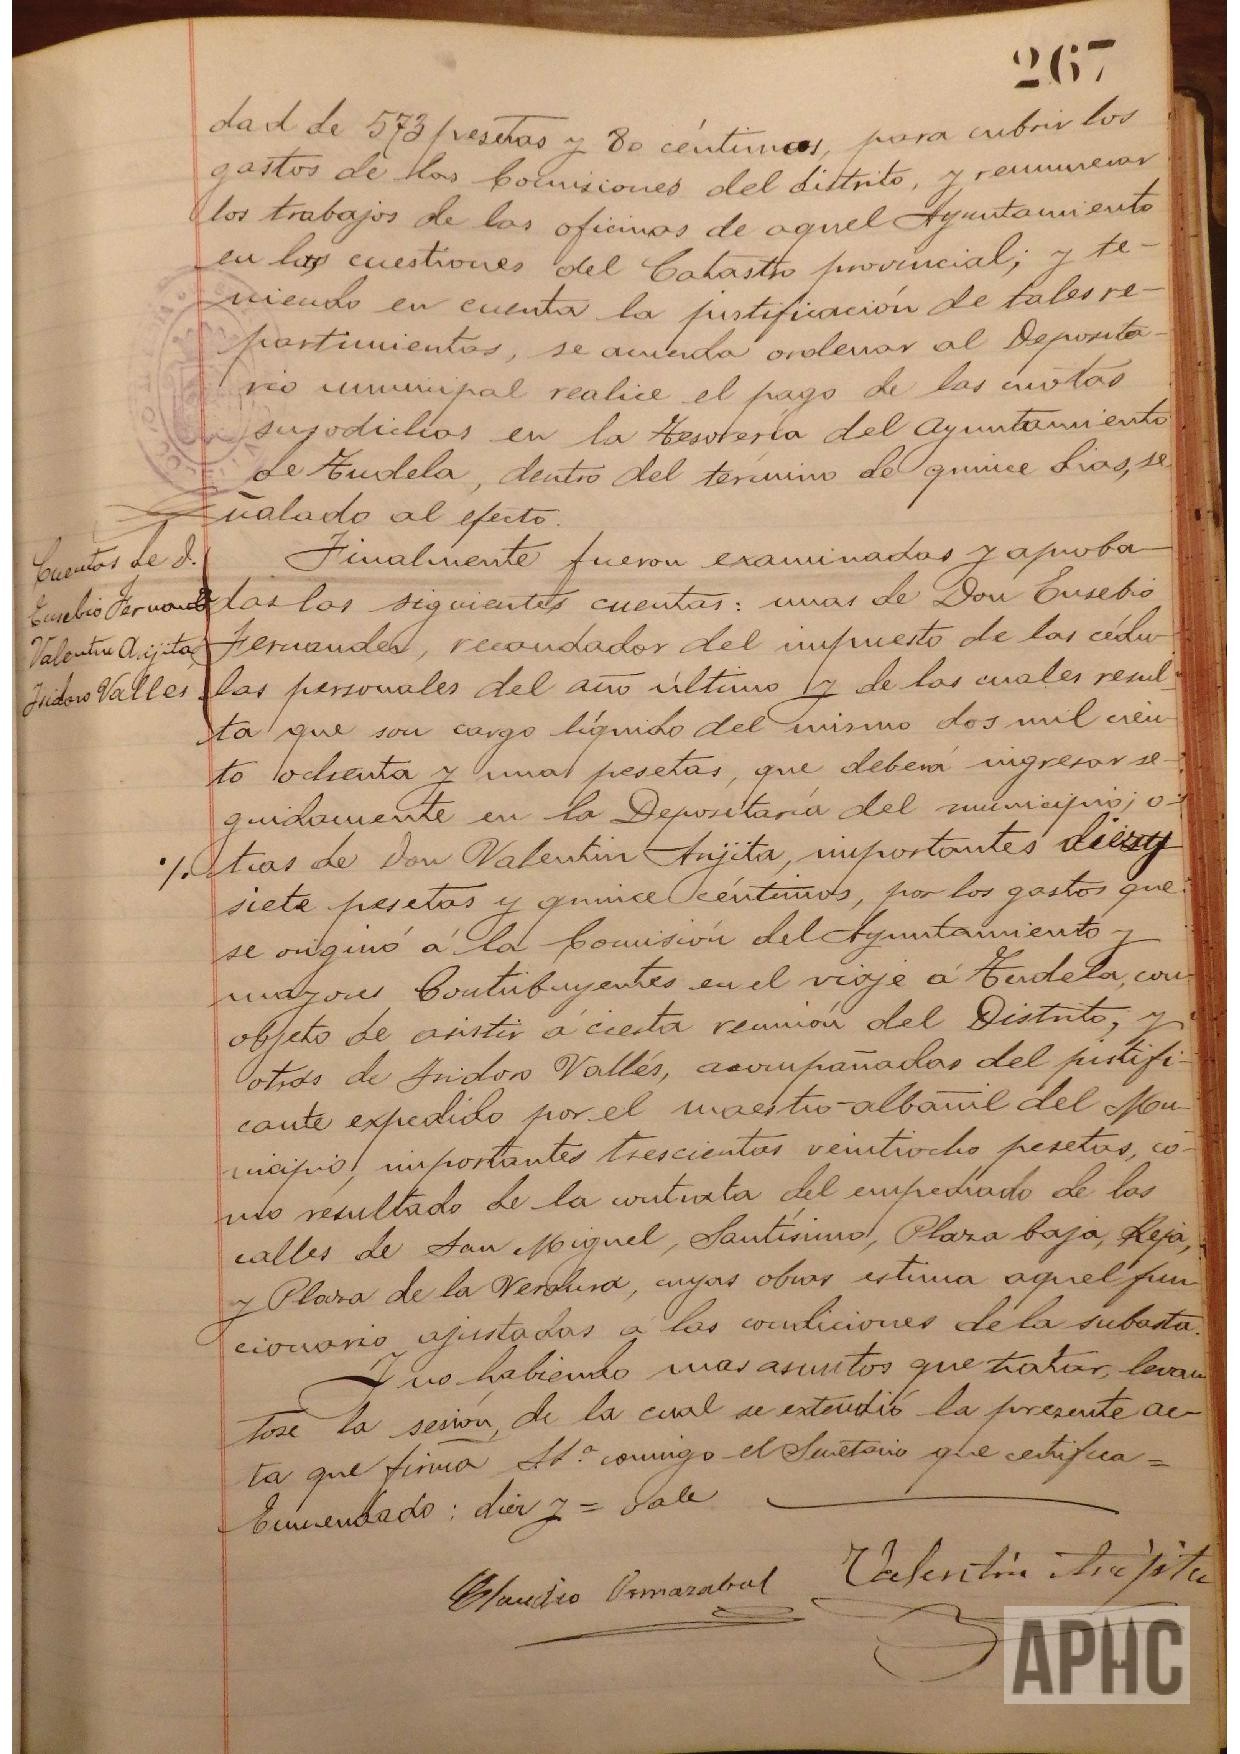 267
dad de 573 pesetas y 80 céntimos, para cubrir los
gastos de las Comisiones del distrito, y remunerar
los trabajos de las oficinas de aquel Ayuntamiento
en las cuestiones del Catastro provincial; y te-
niendo en cuenta la justificación de tales re-
partimientos, se acuerda ordenar al Deposita-
rio municipal realice el pago de las cuotas
susodichas en la Tesorería del Ayuntamiento
de Tudela, dentro del término de quince dias, se
ñalado al efecto.
Cuentas de D.
Eusebio Fernand
Valentin Arijita,
Isidoro Valles
Finalmente fueron examinadas y aproba-
das las siguientes cuentas: unas de Don Eusebio
Fernandez, recaudador del impuesto de las cédu-
las personales del año último y de las cuales resul-
ta que son cargo líquido del mismo dos mil cien-
to ochenta y una pesetas, que deberá ingresar se-
guidamente en la Depositaría del municipio; o-
%. tras de Don Valentin Arijita, importantes diez y
siete pesetas y quince céntimos, por los gastos que
se originó á la Comisión del Ayuntamiento y
mayores Contribuyentes en el viaje á Tudela, con
objeto de asistir á cierta reunión del Distrito, y
otras de Isidoro Vallés, acompañadas del justifi-
cante expedido por el maestro-albañil del Mu-
nicipio, importantes trescientas veintiocho pesetas, co-
mo resultado de la contrata del empedrado de las
calles de San Miguel, Santísimo, Plaza baja, Reja,
y Plaza de la Verdura, cuyas obras estima aquel fun
cionario ajustadas a las condiciones de la subasta.
Y no habiendo mas asuntos que tratar, levan
tose la sesión, de la cual se extendió la presente ac-
ta que firma S.Sª. conmigo el Secretario que certifica =
Enmendado: diez y = Vale
Claudio Ormazabal
Valentín Arijita
APHC